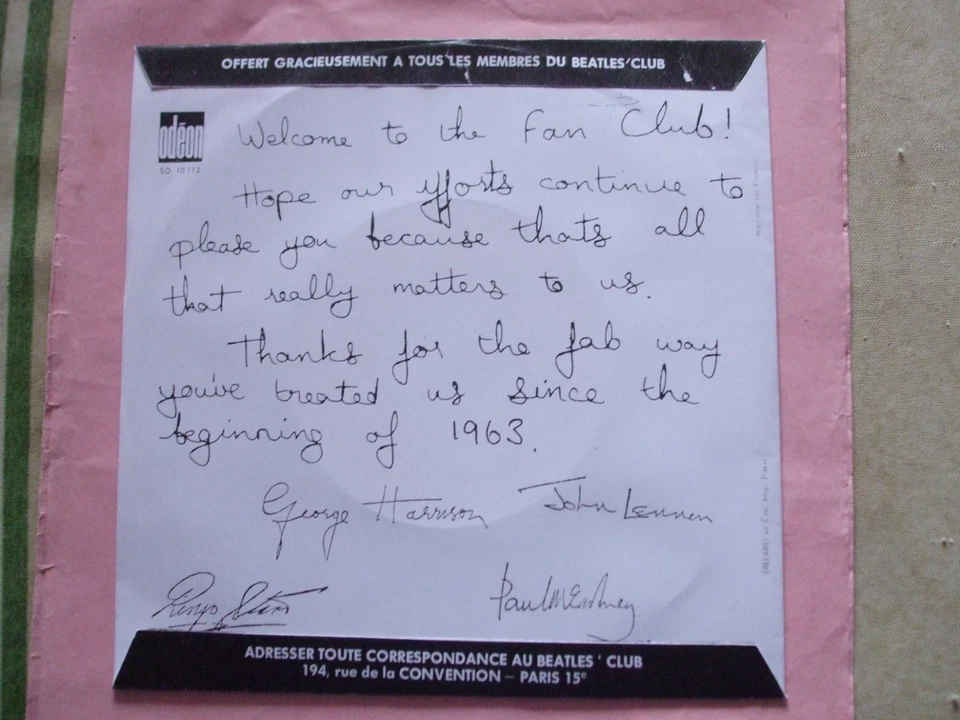 OFFERT GRACIEUSEMENT A TOUS LES MEMBRES DU BEATLES'CLUB
odéon
SO 10112
Welcome to the Fan Club!
Hope our efforts continue to
please you because thats all
that really matters to us.
Thanks for the fab way
you've treated us since the
beginning of 1963.
George Harrison John Lennon
Ringo Starr Paul McCartney
ADRESSER TOUTE CORRESPONDANCE AU BEATLES ' CLUB
194, rue de la CONVENTION — PARIS 15e